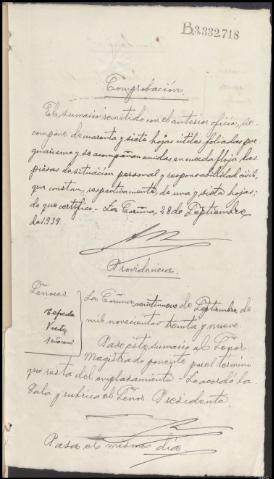 B3.332.718
Comprobación
El sumario remitido con el anterior oficio, se
compone de cuarenta y siete hojas útiles foliadas por
guarismo y se acompañan unidas en cuerda floja las
piezas de situación personal y responsabilidad civil,
que constan, respectivamente de una y siete hojas;
de que certifico.- La Coruña, 28 de Septiembre
de 1939.
Providencia
Señores
La Coruña veintinueve de Septiembre de
mil novecientos treinta y nueve
Pase este sumario al Señor
Magistrado ponente por el termino
que resta del emplazamiento.- Lo acordó la
Sala y rubrica el Señor Presidente
Pasa el mismo día